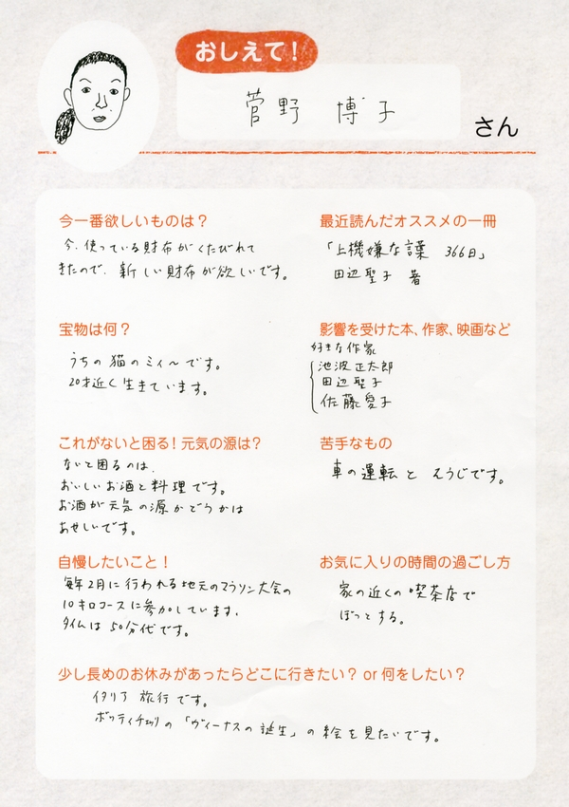 おしえて!
菅野 博子
さん
今一番欲しいものは?
今、使っている財布がくたびれて
きたので、新しい財布が欲しいです。
最近読んだオススメの一冊
「上機嫌な言葉 366日」
田辺聖子 著
宝物は何?
うちの猫のミィ〜です。
20才近く生きています。
影響を受けた本、作家、映画など
好きな作家
池波正太郎
田辺聖子
佐藤愛子
これがないと困る!元気の源は?
ないと困るのは、
おいしいお酒と料理です。
お酒が元気の源かどうかは
あやしいです。
苦手なもの
車の運転と そうじです。
自慢したいこと!
毎年2月に行われる地元のマラソン大会の
10キロコースに参加しています。
タイムは50分代です。
お気に入りの時間の過ごし方
家の近くの喫茶店で
ぼっとする。
少し長めのお休みがあったらどこに行きたい? or 何をしたい?
イタリア旅行です。
ボッティチェリの「ヴィーナスの誕生」の絵を見たいです。